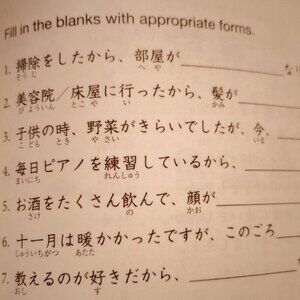 Fill in the blanks with appropriate forms.
1. 掃除をしたから、部屋が
そうじ へや
2. 美容院/床屋に行ったから、髪が
びよういん とこや い かみ
3. 子供の時、野菜がきらいでしたが、今、
こども とき やさい いま
4. 毎日ピアノを練習しているから、
まいにち れんしゅう
5. お酒をたくさん飲んで、顔が
さけ の かお
6. 十一月は暖かかったですが、このごろ
じゅういちがつ あたた
7. 教えるのが好きだから、
おし す